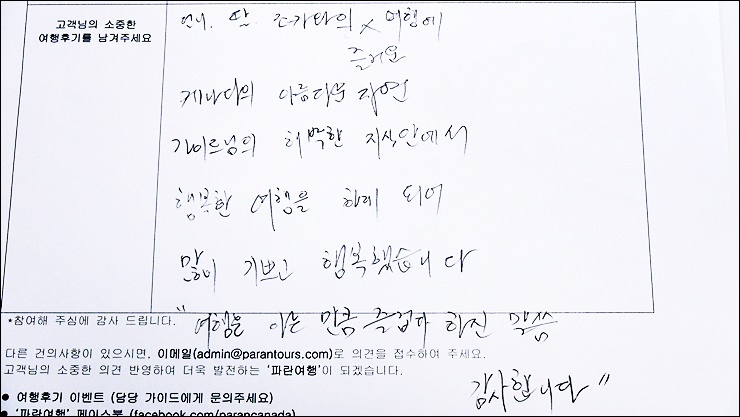 고객님의 소중한
여행후기를 남겨주세요
언니, 딸, 조카와의 × 여행에
즐거운
케나다의 아름다운 자연
가이드님의 해박한 지식안에서
행복한 여행을 하게 되어
많이 기쁘고 행복했습니다
*참여해 주심에 감사 드립니다.
"여행은 아는 만큼 즐겁다 하신 말씀
다른 건의사항이 있으시면, 이메일(admin@parantours.com)로 의견을 접수하여 주세요.
고객님의 소중한 의견 반영하여 더욱 발전하는 '파란여행'이 되겠습니다.
감사합니다"
● 여행후기 이벤트 (담당 가이드에게 문의주세요)
● '파란여행' 페이스북 (facebook.com/parancanada)